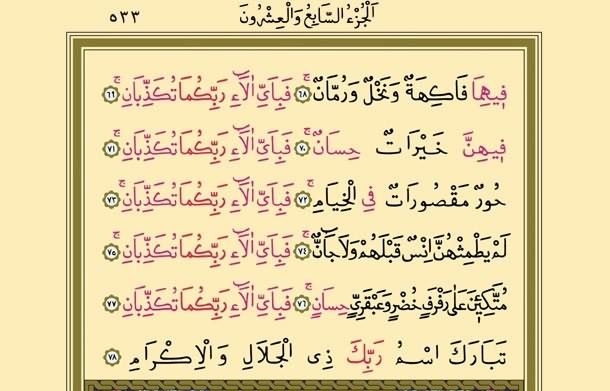 اَلْجُزْءُ السَّابِعُ وَالْعِشْرُونَ ٥٣٣
فِيهِمَا فَاكِهَةٌ وَنَخْلٌ وَرُمَّانٌۚ ﴿٦٨﴾ فَبِاَىِّ اٰلَٓاءِ رَبِّكُمَا تُكَذِّبَانِۚ ﴿٦٩﴾
فِيهِنَّ خَيْرَاتٌ حِسَانٌۚ ﴿٧٠﴾ فَبِاَىِّ اٰلَٓاءِ رَبِّكُمَا تُكَذِّبَانِۚ ﴿٧١﴾
حُورٌ مَقْصُورَاتٌ فِى الْخِيَامِۚ ﴿٧٢﴾ فَبِاَىِّ اٰلَٓاءِ رَبِّكُمَا تُكَذِّبَانِۚ ﴿٧٣﴾
لَمْ يَطْمِثْهُنَّ اِنْسٌ قَبْلَهُمْ وَلَا جَٓانٌّۚ ﴿٧٤﴾ فَبِاَىِّ اٰلَٓاءِ رَبِّكُمَا تُكَذِّبَانِۚ ﴿٧٥﴾
مُتَّكِـِٔينَ عَلٰى رَفْرَفٍ خُضْرٍ وَعَبْقَرِىٍّ حِسَانٍۚ ﴿٧٦﴾ فَبِاَىِّ اٰلَٓاءِ رَبِّكُمَا تُكَذِّبَانِ ﴿٧٧﴾
تَبَارَكَ اسْمُ رَبِّكَ ذِى الْجَلَالِ وَالْاِكْرَامِ ﴿٧٨﴾